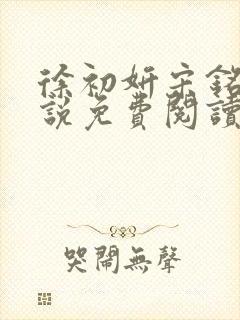 徐初妍宋銘
說免費閱讀
哭鬧無聲